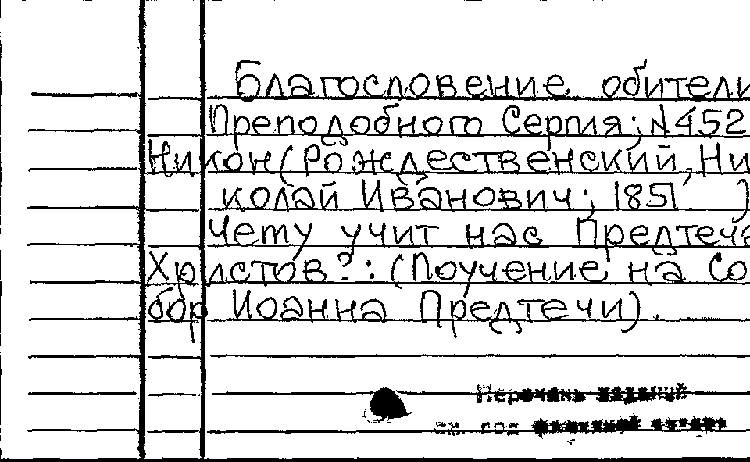 Благословение обители
Преподобного Сергия; №452
Никон (Рождественский, Ни-
колай Иванович; 1851 )
Чему учит нас Предтеча
Христов?: (Поучение на Со-
бор Иоанна Предтечи).
Перечень изданий
см. под